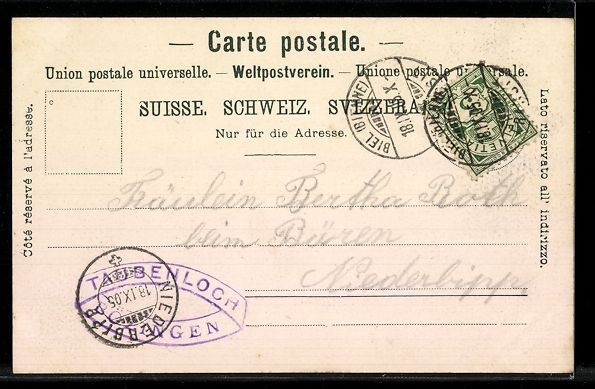 — Carte postale. —
Union postale universelle. — Weltpostverein. — Unione postale universale.
SUISSE. SCHWEIZ. SVIZZERA.
Nur für die Adresse.
Côté réservé à l'adresse.
Lato riservato all' indirizzo.
BIEL (BIENNE)
18.IX.05. X
HELVETIA
Fräulein Bertha Roth
beim Büren
Niederbipp
TAUBENLOCH
NIEDERBIPP
18.IX.05.